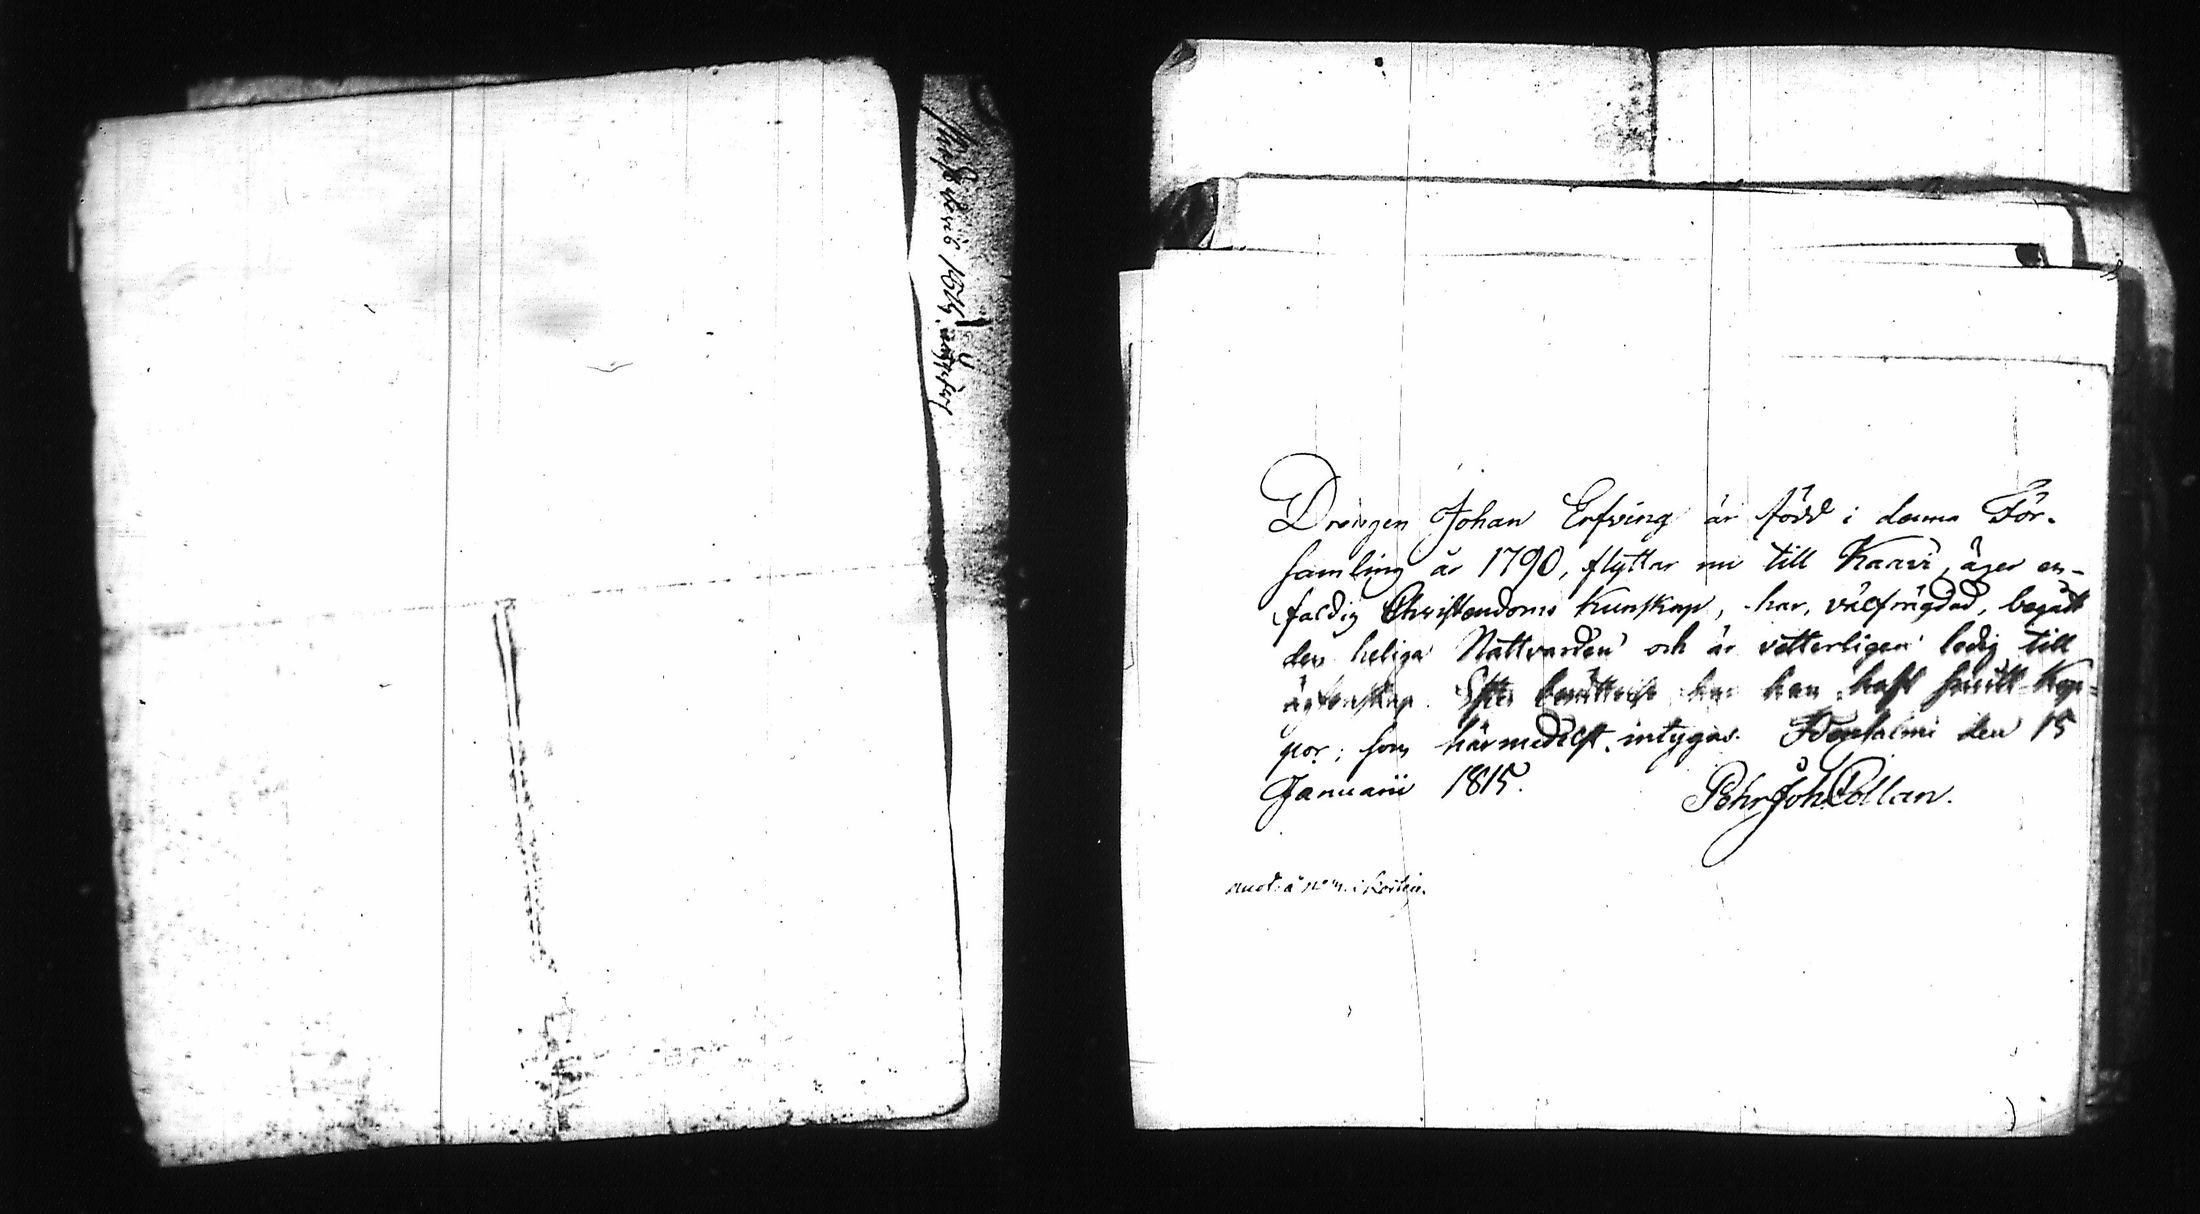 Drängen Johan Erfving är född i denna För-
samling år 1790, flyttar nu till Kaavi, äger en-
faldig Christendoms Kunskap, har, välfrägdad, begått
den heliga Nattvarden och är vetterligen ledig till
ägtenskap. Efter berättelse har han haft Kop-
por; som härmedelst intygas. Idensalmi den 15
Januarii 1815. Pehr Joh. Collan.